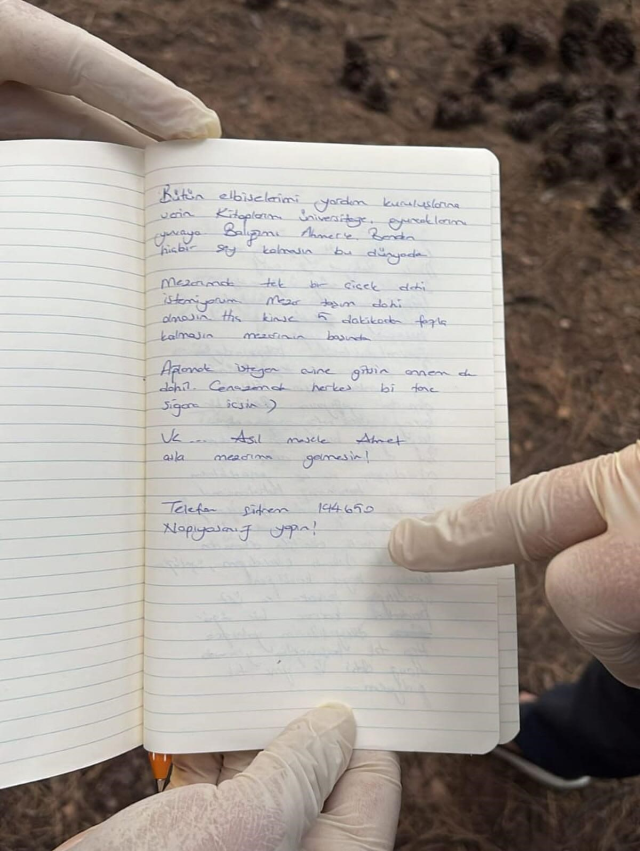 Bütün elbiselerimi yardım kuruluşlarına
verin Kitaplarımı üniversiteye, oyuncaklarımı
yuvaya Balığımı Ahmet'e. Benden
hiçbir şey kalmasın bu dünyada
Mezarımda tek bir çiçek dahi
istemiyorum Mezar taşım dahi
olmasın Hiç kimse 5 dakikadan fazla
kalmasın mezarımın başında
Ağlamak isteyen evine gitsin annem de
dahil. Cenazemde herkes bi tane
sigara içsin :)
Ve ... Asıl mesele Ahmet
asla mezarıma gelmesin!
Telefon şifrem 194650
Napıyosanız yapın!